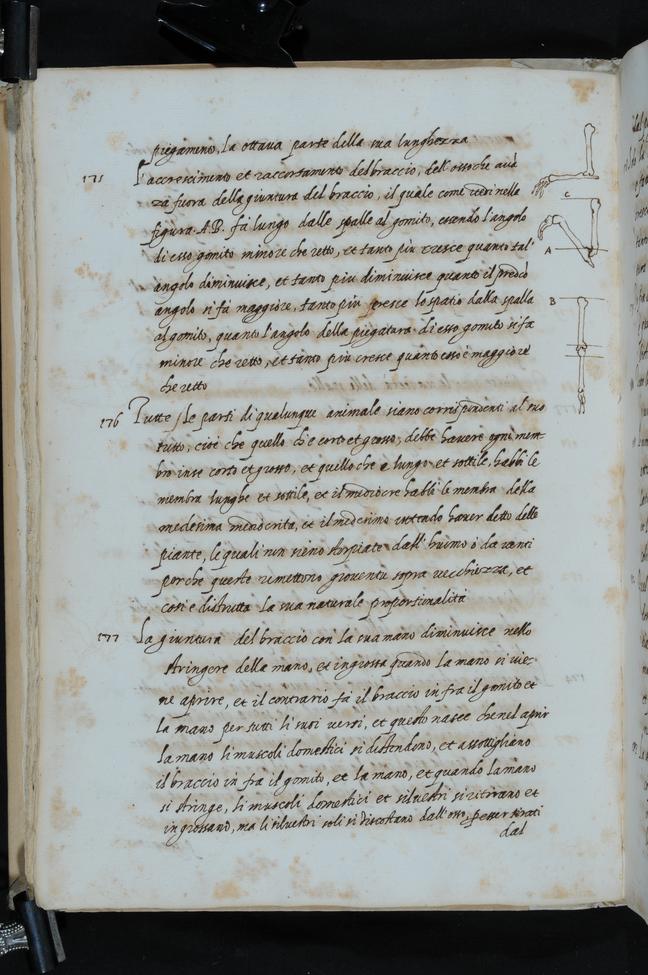 piegamento, La ottava parte della sua lunghezza
175 L'accrescimento et raccortamento del braccio, dell'osso che auã
za fuora della giuntura del braccio, il quale come vedi nella
figura A.B. fa lungo dalle spalle al gomito, essendo l'angolo
di esso gomito minore che retto, et tanto piu cresce quanto tal'
angolo diminuisce, et tanto piu diminuisce quanto il predo
angolo si fa maggiore, tanto piu cresce lo spatio dalla spalla
al gomito, quanto l'angolo della piegatura di esso gomito si fa
minore che retto, et tanto piu cresce quanto esso è maggiore
che retto
C
A
B
176 Tutte le parti di qualunque animale siano corrispondenti al suo
tutto, cioè che quello ch'è corto et grosso, debbe havere ogni mem-
bro in se corto et grosso, et quello che e lungo et sottile, habbi le
membra lunghe et sottile, et il mediocre habbi le membra della
medesima mediocrita, et il medesimo intendo haver detto delle
piante, le quali non sieno storpiate dall'huomo ò da venti
perche queste rimettono gioventu sopra vecchiezza, et
cosi è distrutta la sua naturale proportionalità
177 La giuntura del braccio con la sua mano diminuisce nello
stringere della mano, et ingrossa quando la mano si vie-
ne aprire, et il contrario fa il braccio in fra il gomito et
la mano per tutti li suoi versi, et questo nasce che nel aprir
la mano li muscoli domestici si destendono, et assottigliano
il braccio in fra il gomito, et la mano, et quando la mano
si stringe, li muscoli domestici et silvestri si ritirano et
ingrossano, ma li silvestri soli si discostano dall'osso, p esser tirati
dal